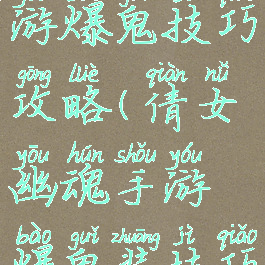 游爆鬼技巧
gōng lüè qiàn nǚ
攻略(倩女
yōu hún shǒu yóu
幽魂手游
bào guǐ zhuāng jì qiǎo
爆鬼装技巧